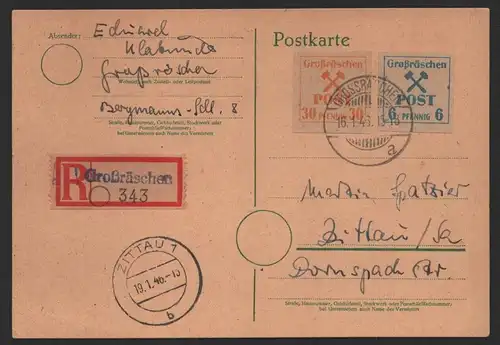 Absender: Eduard
Klabunde
Großräschen
Wohnort, auch Zustell- oder Leitpostamt
Bergmanns-    8
Straße, Hausnummer, Gebäudeteil, Stockwerk oder
Postschließfachnummer;
bei Untermietern auch Name des Vermieters
R Großräschen
343
ZITTAU 1
19.1.46.-15
b
Postkarte
Großräschen
POST
30 PFENNIG 30
Großräschen
POST
6 PFENNIG 6
GROSSRÄSCHEN
16.1.46.15-16
a
Martin
Zittau/Sa
Dornspach Str.
Straße, Hausnummer, Gebäudeteil, Stockwerk oder Postschließfachnummer;
bei Untermietern auch Name des Vermieters